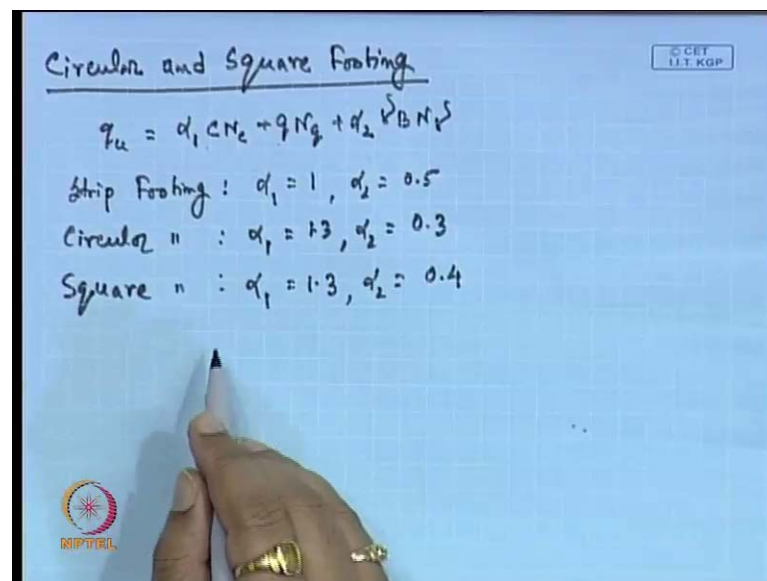 Circular and Square Footing
© CET
I.I.T. KGP
qu = α1 CNc + qNq + α2 γBNγ
Strip Footing : α1 = 1, α2 = 0.5
Circular " : α1 = 1.3, α2 = 0.3
Square " : α1 = 1.3, α2 = 0.4
NPTEL